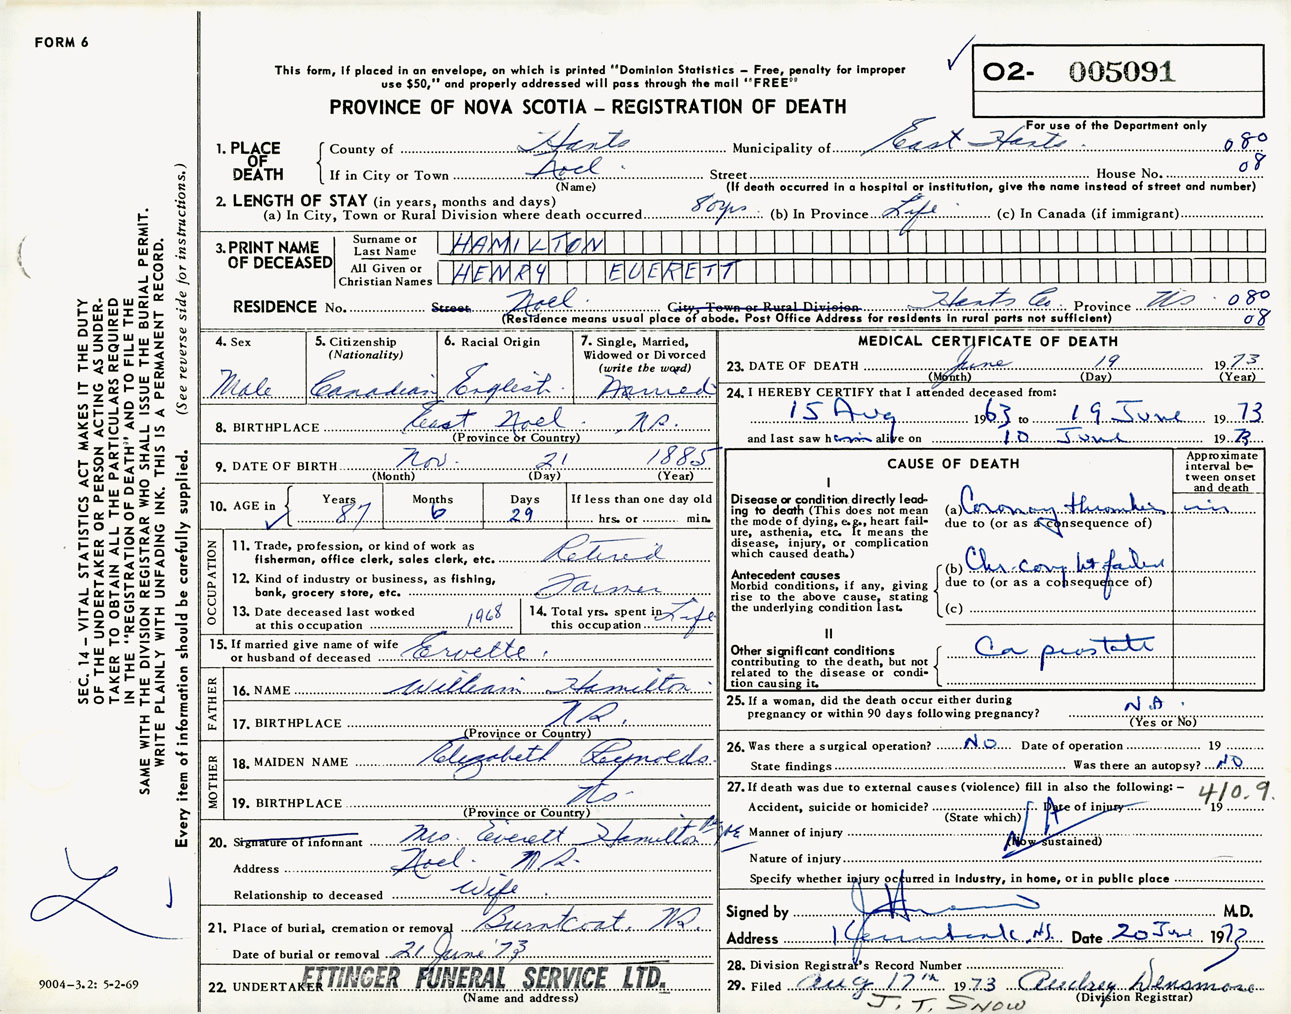 FORM 6
This form, if placed in an envelope, on which is printed "Dominion Statistics – Free, penalty for improper
use $50," and properly addressed will pass through the mail "FREE"
PROVINCE OF NOVA SCOTIA – REGISTRATION OF DEATH
O2- 005091
For use of the Department only
1. PLACE OF DEATH County of Hants Municipality of East Hants. 080
If in City or Town Noel Street House No. 08
(Name) (If death occurred in a hospital or institution, give the name instead of street and number)
2. LENGTH OF STAY (in years, months and days)
(a) In City, Town or Rural Division where death occurred 80yrs. (b) In Province Life (c) In Canada (if immigrant)
3. PRINT NAME OF DECEASED Surname or Last Name HAMILTON
All Given or Christian Names HENRY EVERETT
RESIDENCE No. Street Noel. City, Town or Rural Division Hants Co. Province NS. 080
(Residence means usual place of abode. Post Office Address for residents in rural parts not sufficient) 08
4. Sex
Male
5. Citizenship
(Nationality)
Canadian
6. Racial Origin
English.
7. Single, Married,
Widowed or Divorced
(write the word)
Married
8. BIRTHPLACE East Noel N.S.
(Province or Country)
9. DATE OF BIRTH Nov. 21 1885
(Month) (Day) (Year)
10. AGE in Years 87 Months 6 Days 29 If less than one day old
hrs. or min.
OCCUPATION
11. Trade, profession, or kind of work as
fisherman, office clerk, sales clerk, etc. Retired
12. Kind of industry or business, as fishing,
bank, grocery store, etc. Farmer
13. Date deceased last worked
at this occupation 1968
14. Total yrs. spent in
this occupation Life
15. If married give name of wife
or husband of deceased Ervette.
FATHER
16. NAME William Hamilton
17. BIRTHPLACE N.S.
(Province or Country)
MOTHER
18. MAIDEN NAME Elizabeth Reynolds.
19. BIRTHPLACE NS.
(Province or Country)
20. Signature of informant Mrs. Everett Hamilton
Address Noel. N.S.
Relationship to deceased Wife.
21. Place of burial, cremation or removal Burntcoat, N.S.
Date of burial or removal 21 June '73
22. UNDERTAKER ETTINGER FUNERAL SERVICE LTD.
(Name and address)
MEDICAL CERTIFICATE OF DEATH
23. DATE OF DEATH June 19 1973
(Month) (Day) (Year)
24. I HEREBY CERTIFY that I attended deceased from:
15 Aug 1963 to 19 June 1973
and last saw him alive on 10 June 1973
CAUSE OF DEATH
Approximate
interval be-
tween onset
and death
I
Disease or condition directly lead-
ing to death (This does not mean
the mode of dying, e.g., heart fail-
ure, asthenia, etc. It means the
disease, injury, or complication
which caused death.)
(a) Coronary thrombosis
due to (or as a consequence of)
Antecedent causes
Morbid conditions, if any, giving
rise to the above cause, stating
the underlying condition last.
(b) Chr. cong ht failure
due to (or as a consequence of)
(c)
II
Other significant conditions
contributing to the death, but not
related to the disease or condi-
tion causing it.
Ca prostate
25. If a woman, did the death occur either during
pregnancy or within 90 days following pregnancy? N.A.
(Yes or No)
26. Was there a surgical operation? NO Date of operation 19
State findings Was there an autopsy? NO
27. If death was due to external causes (violence) fill in also the following: – 410.9.
Accident, suicide or homicide? Date of injury 19
(State which)
Manner of injury N/A
(How sustained)
Nature of injury
Specify whether injury occurred in industry, in home, or in public place
Signed by M.D.
Address Kennetcook, N.S. Date 20 June 1973
28. Division Registrar's Record Number
29. Filed Aug 17th 1973 Audrey Densmore
(Division Registrar)
J. T. SNOW
SEC. 14 – VITAL STATISTICS ACT MAKES IT THE DUTY
OF THE UNDERTAKER OR PERSON ACTING AS UNDER-
TAKER TO OBTAIN ALL THE PARTICULARS REQUIRED
IN THE "REGISTRATION OF DEATH" AND TO FILE THE
SAME WITH THE DIVISION REGISTRAR WHO SHALL ISSUE THE BURIAL PERMIT.
WRITE PLAINLY WITH UNFADING INK. THIS IS A PERMANENT RECORD.
Every item of information should be carefully supplied. (See reverse side for instructions.)
9004-3.2: 5-2-69